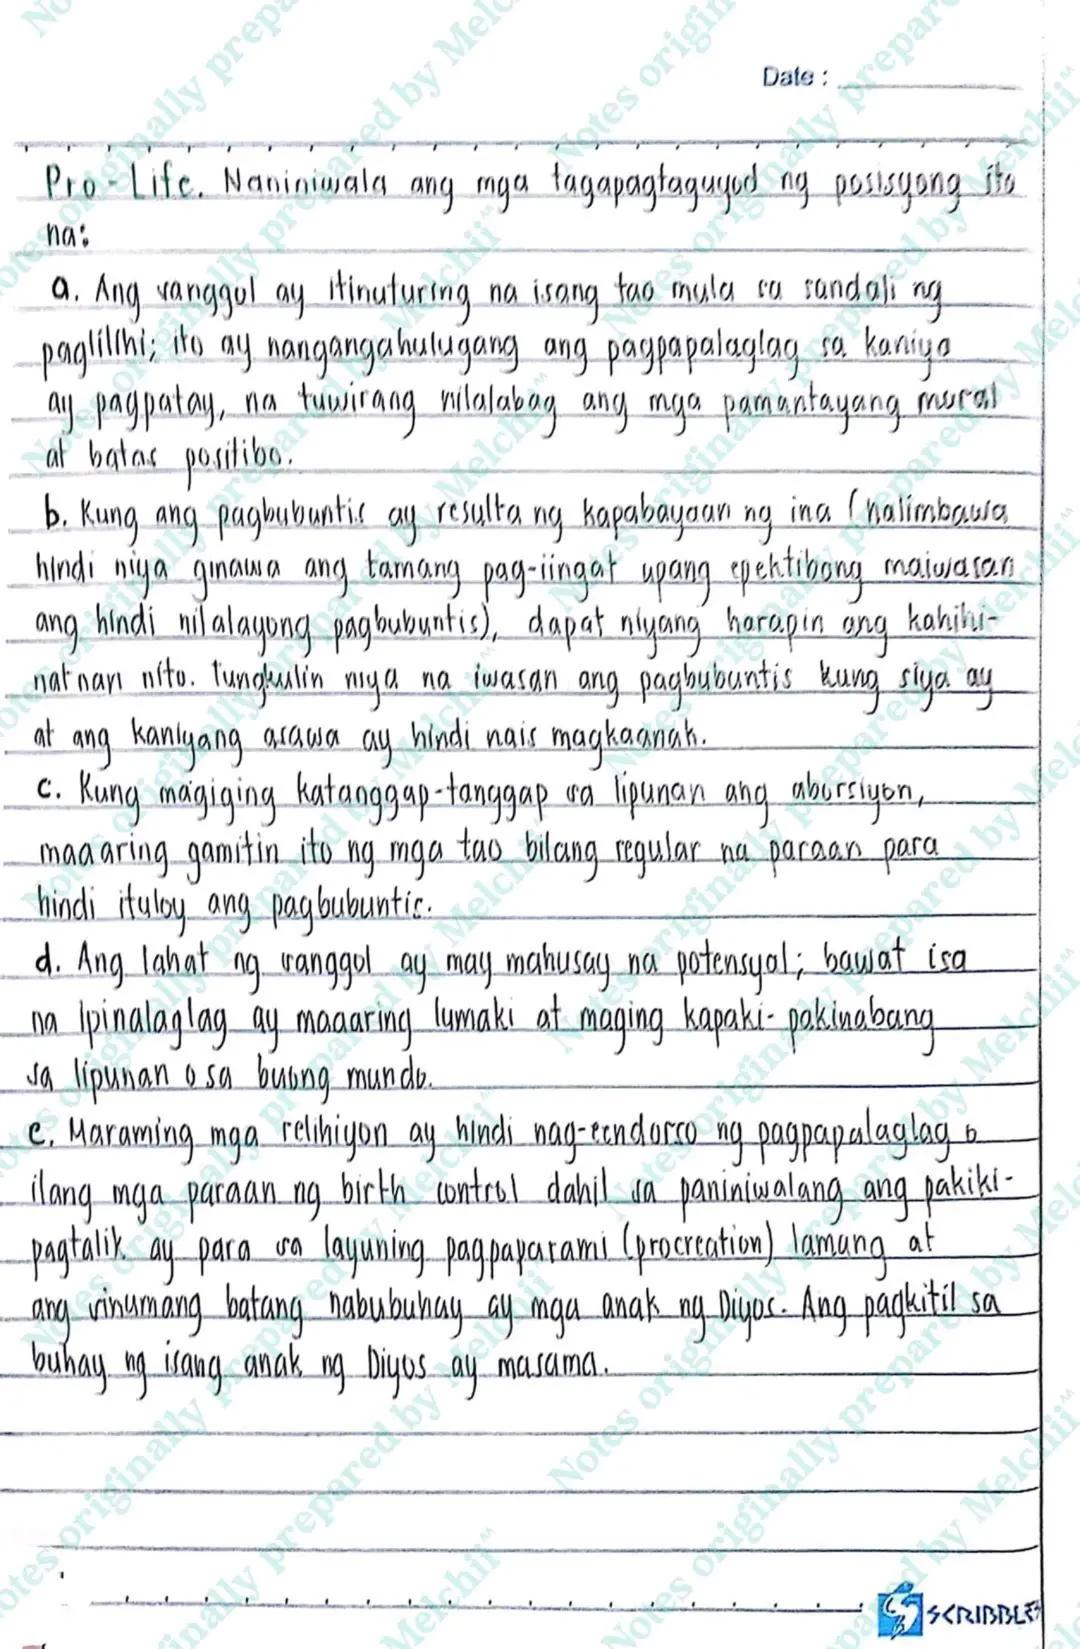 Date :
Pro-Life. Naniniwala ang mga tagapagtaguyod ng posisyong ito
na:
a. Ang sanggol ay itinuturing na isang tao mula sa sandali ng
paglilihi; ito ay nangangahulugang ang pagpapalaglag sa kaniya
ay pagpatay, na tuwirang nilalabag ang mga pamantayang moral
at batas positibo.
b. Kung ang pagbubuntis ay resulta ng kapabayaan ng ina (halimbawa
hindi niya ginawa ang tamang pag-iingat upang epektibong maiwasan
ang hindi nilalayong pagbubuntis), dapat niyang harapin ang kahihi-
natnan nito. Tungkulin niya na iwasan ang pagbubuntis kung siya ay
at ang kaniyang asawa ay hindi nais magkaanak.
c. Kung magiging katanggap-tanggap sa lipunan ang aborsiyon,
maaaring gamitin ito ng mga tao bilang regular na paraan para
hindi ituloy ang pagbubuntis.
d. Ang lahat ng sanggol ay may mahusay na potensyal; bawat isa
na ipinalaglag ay maaaring lumaki at maging kapaki-pakinabang
sa lipunan o sa buong mundo.
e. Maraming mga relihiyon ay hindi nag-eendorso ng pagpapalaglag o
ilang mga paraan ng birth control dahil sa paniniwalang ang pakiki-
pagtalik ay para sa layuning pagpaparami (procreation) lamang at
ang sinumang batang nabubuhay ay mga anak ng Diyos. Ang pagkitil sa
buhay ng isang anak ng Diyos ay masama.
SCRIBBLES
Notes originally prepared by Melchii™